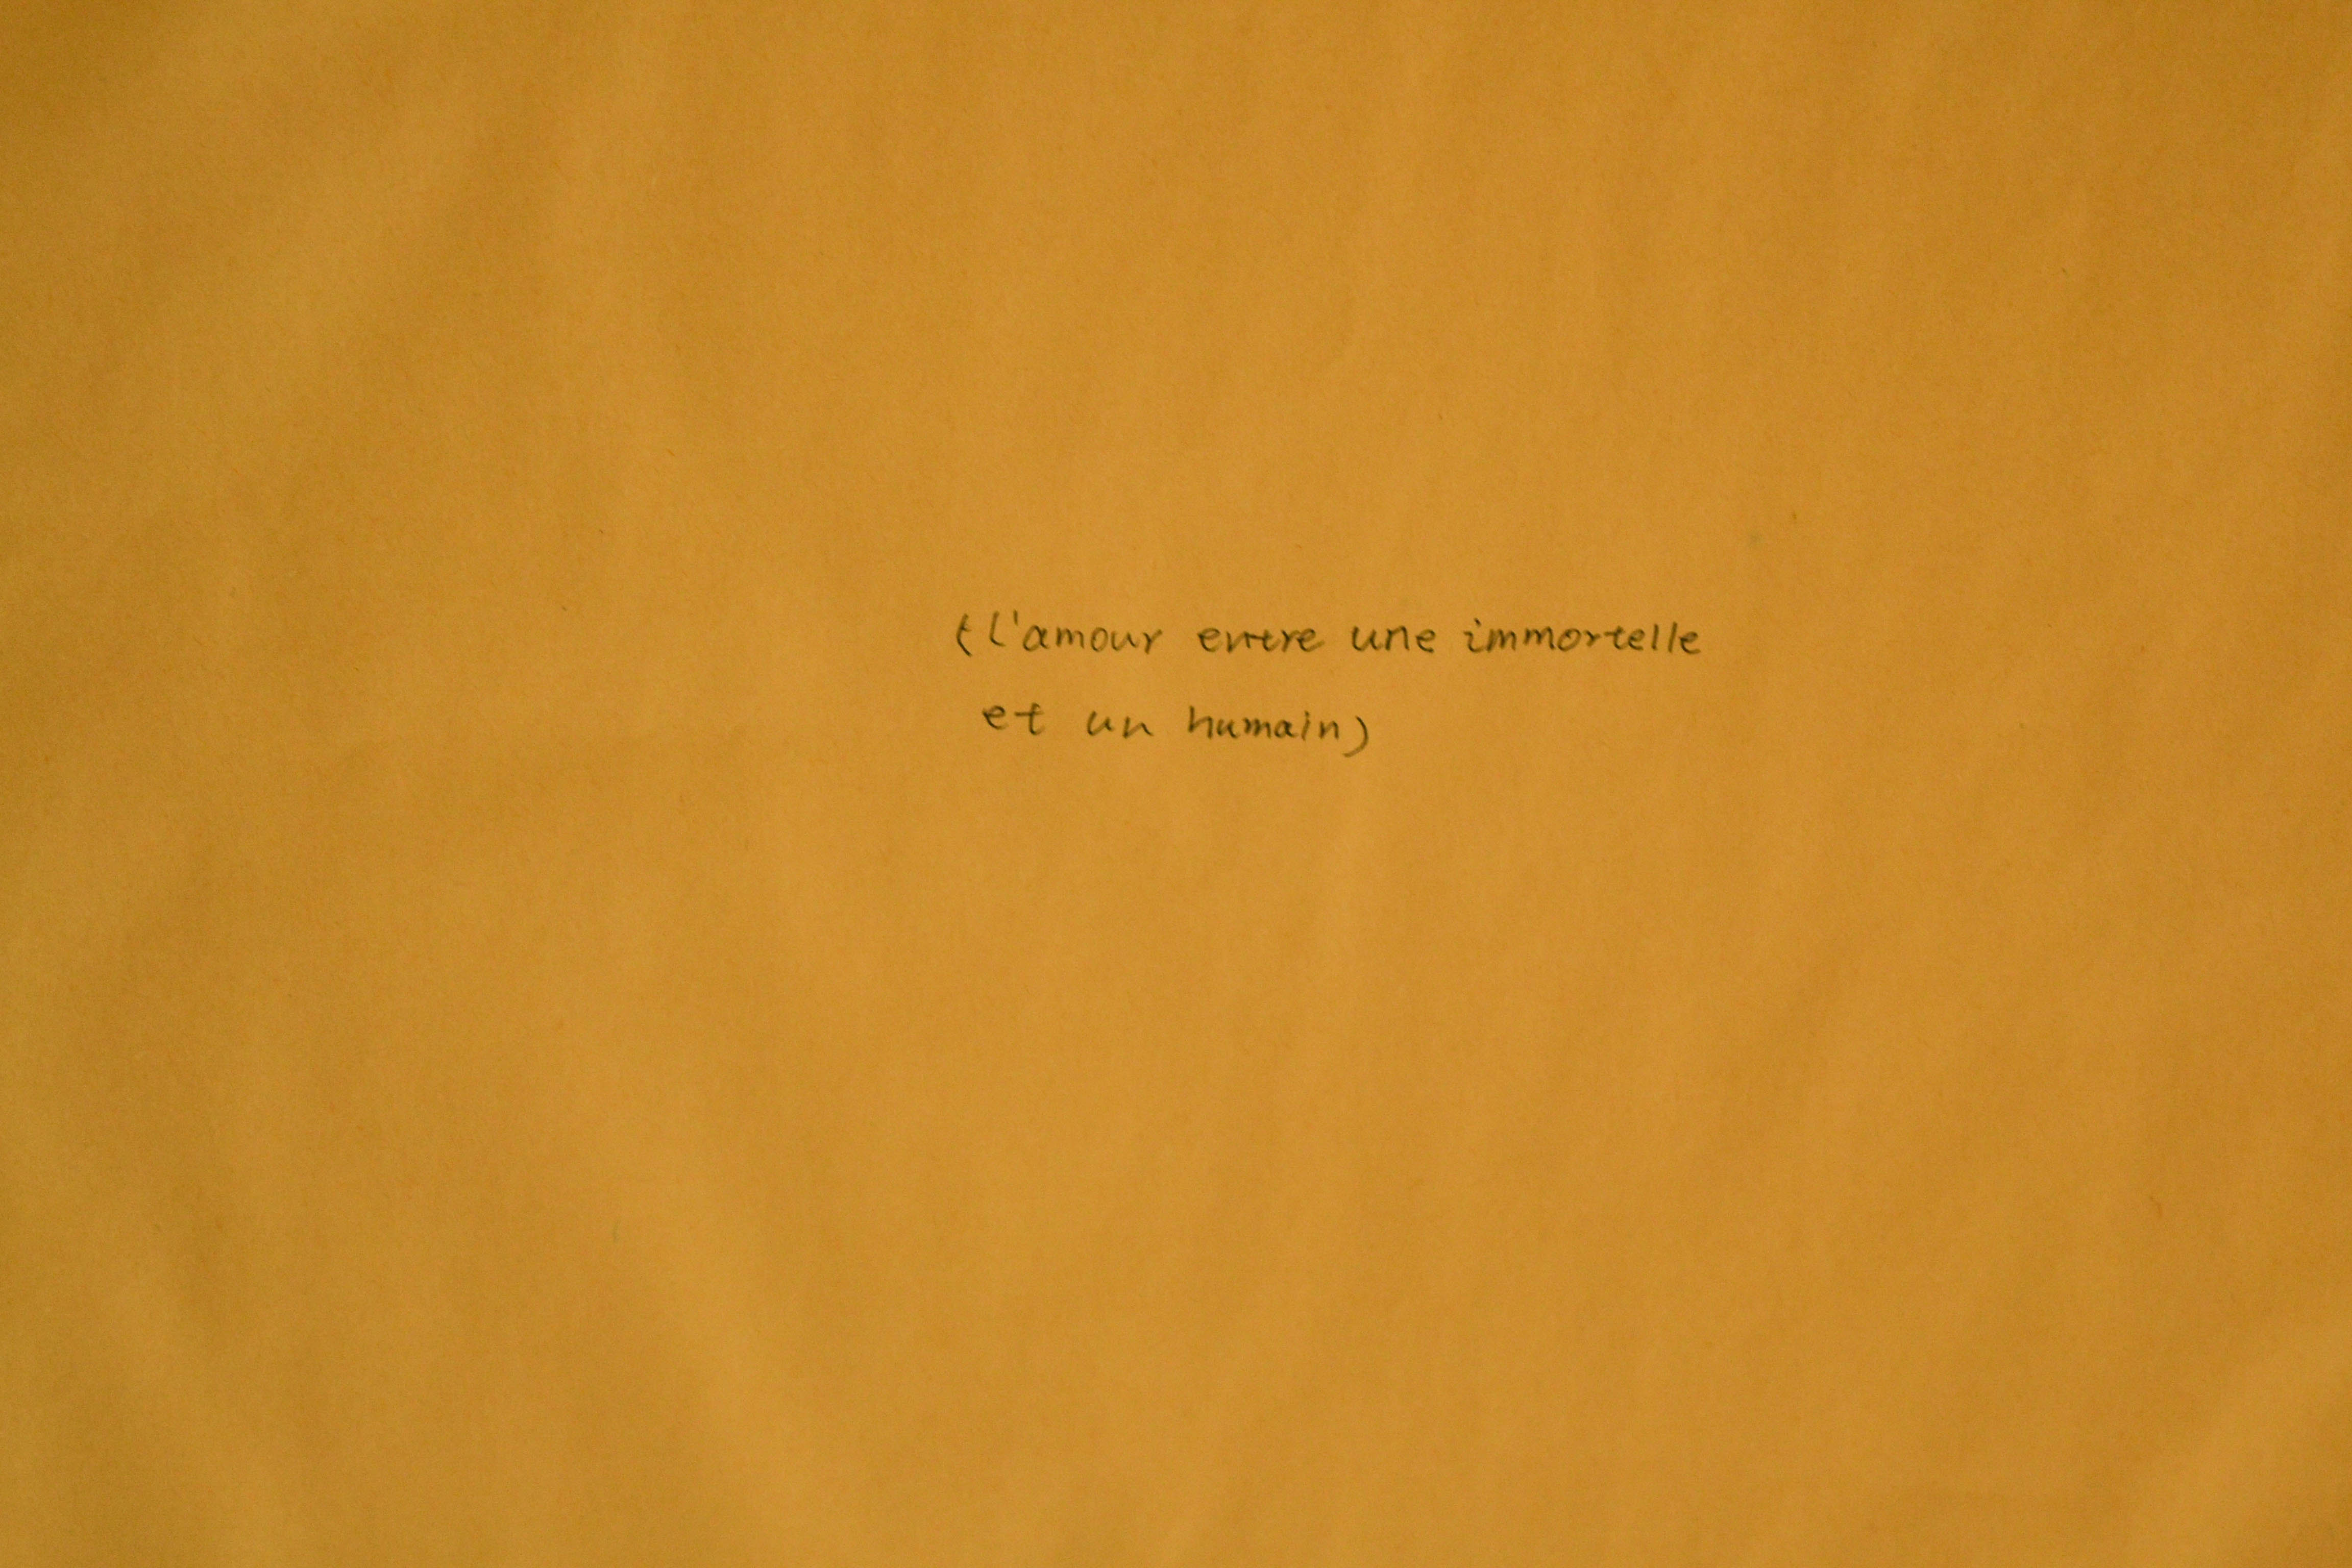 (l'amour entre une immortelle
et un humain)